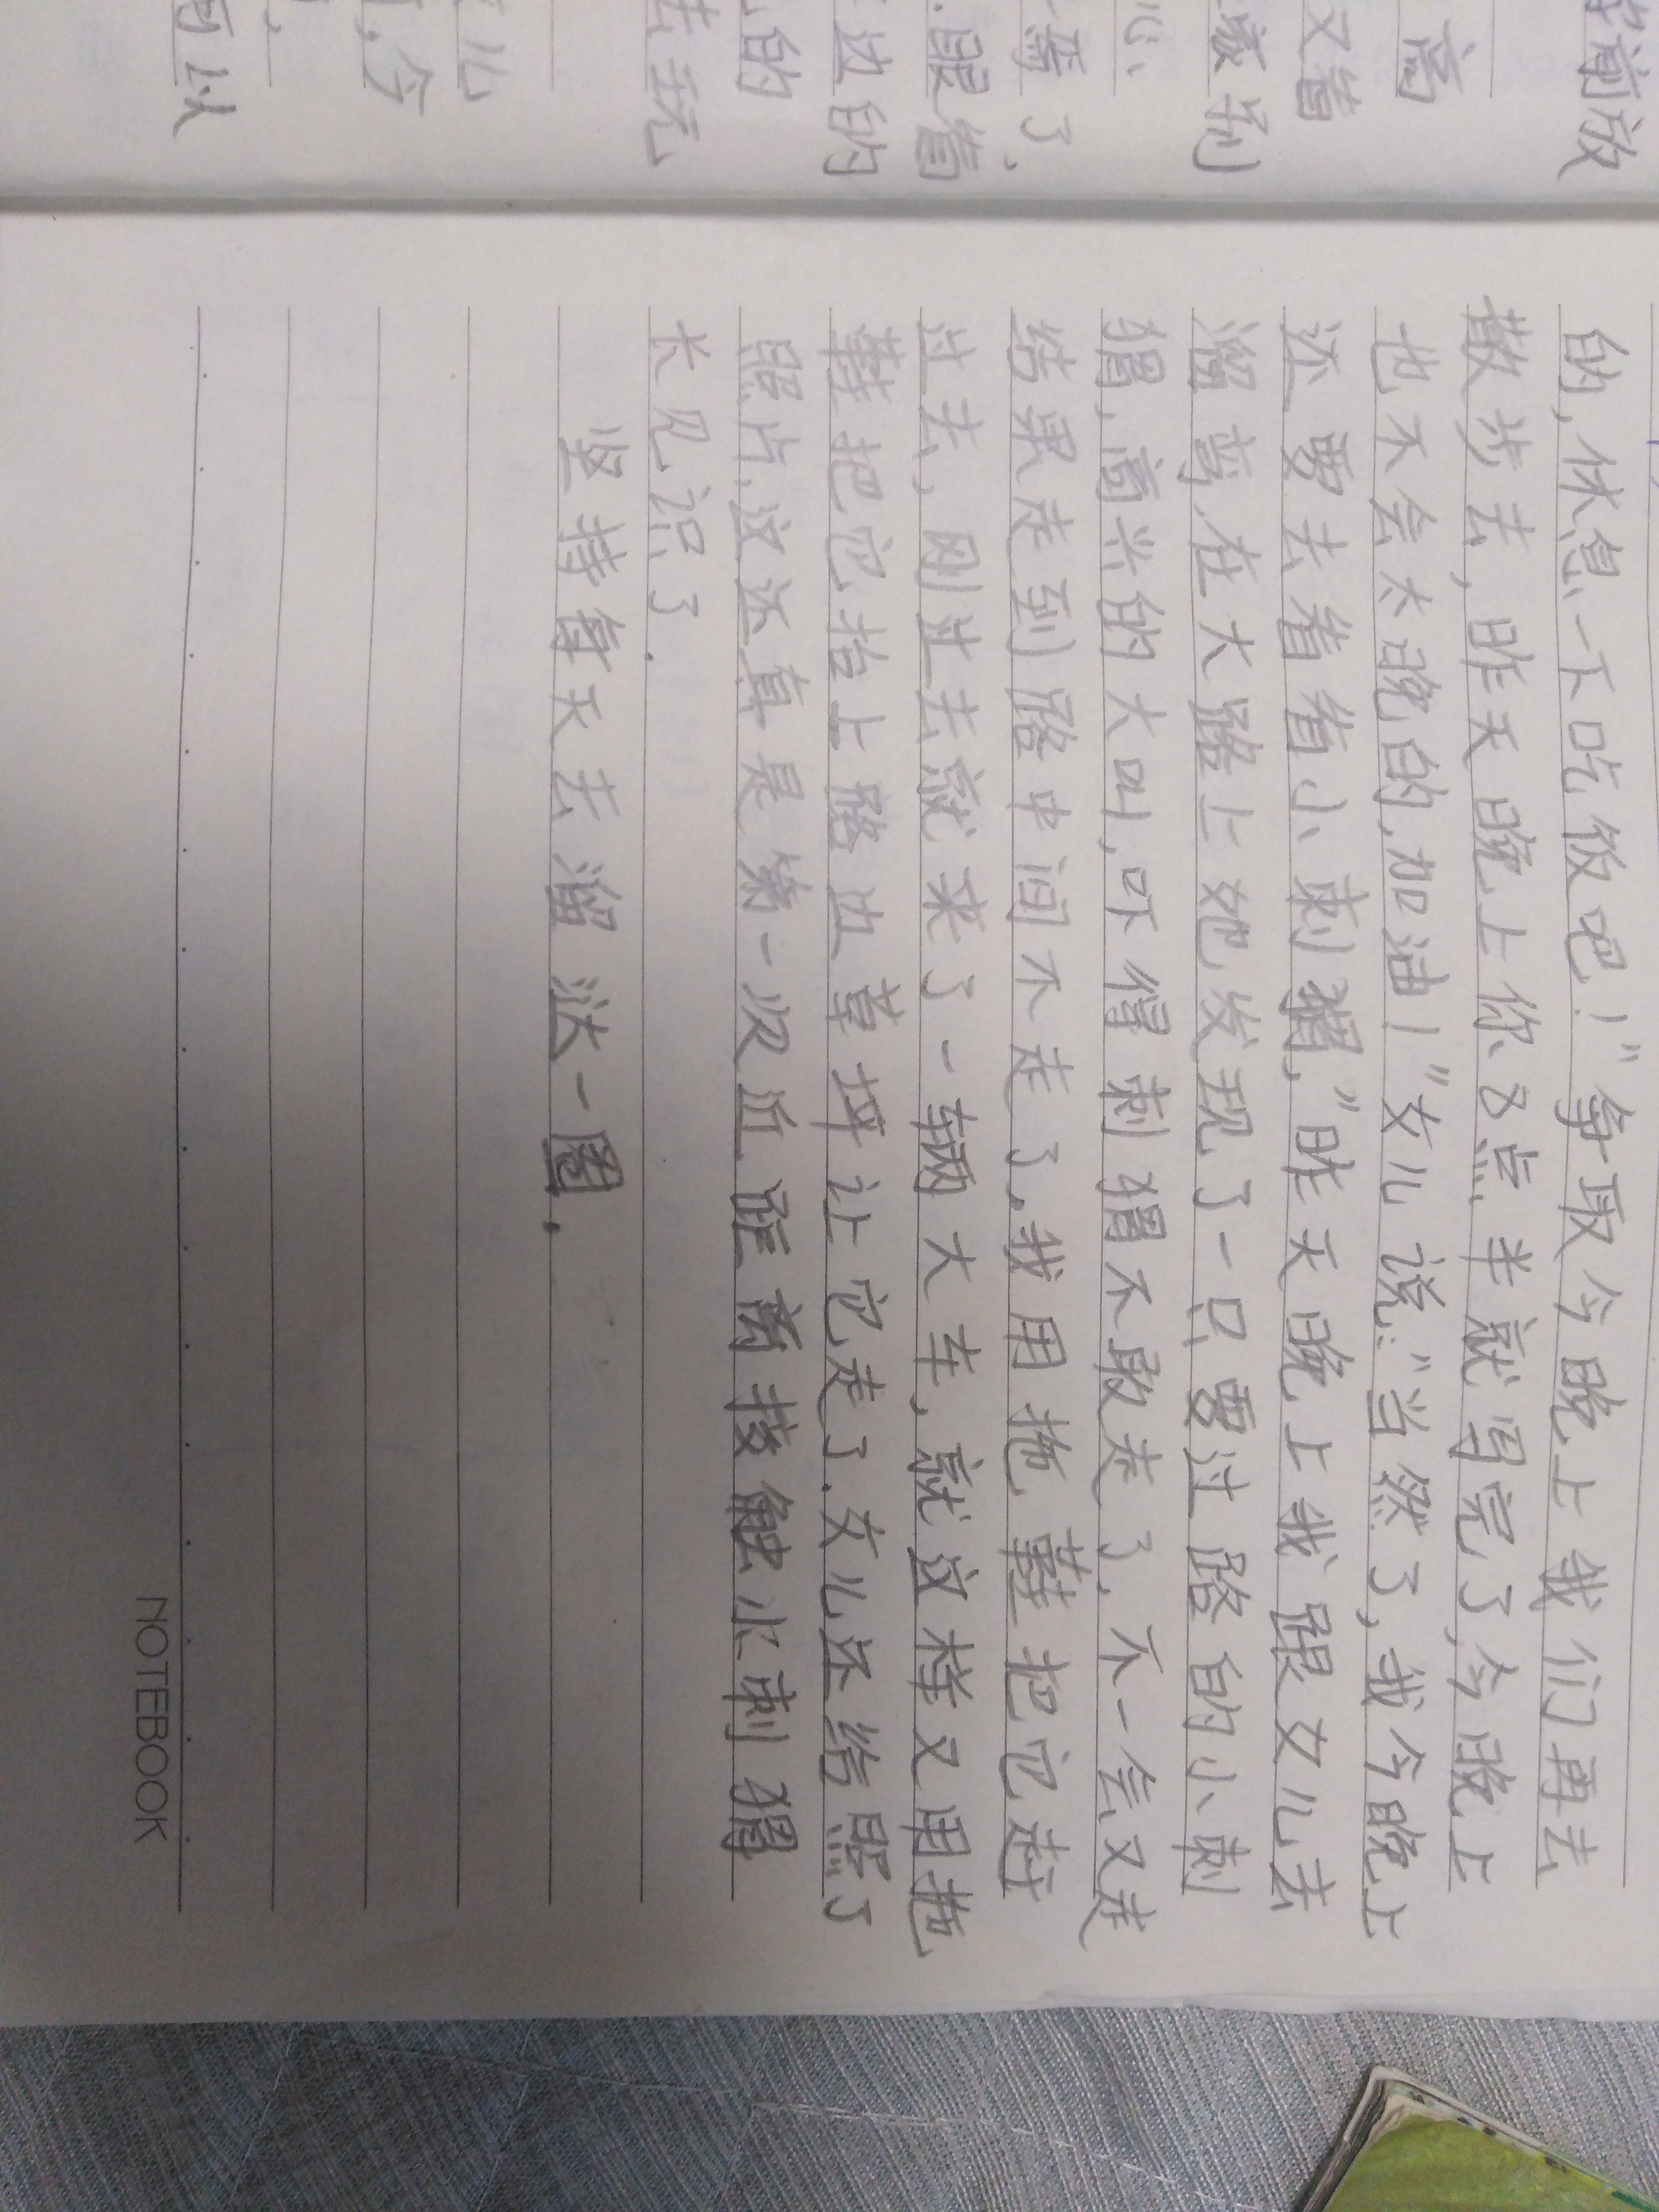 的,休息一下吃饭吧!”争取今晚上我们再去
散步去,昨天晚上你8点半就写完了,今晚上
也不会太晚的,加油!”女儿说:“当然了,我今晚上
还要去看看小刺猬,”昨天晚上我跟女儿去
溜弯,在大路上她发现了一只要过路的小刺
猬,高兴的大叫,吓得刺猬不敢走了,不一会又走
结果走到路中间不走了,我用拖鞋把它赶
过去,刚过去就来了一辆大车,就这样又用拖
鞋把它抬上路边草坪让它走了.女儿还给照了
照片,这还真是第一次近距离接触小刺猬
长见识了.
坚持每天去溜达一圈.
NOTEBOOK
前放
高
又看
到
心
等了,
跟着
边的
的
去玩
儿
,今
可以